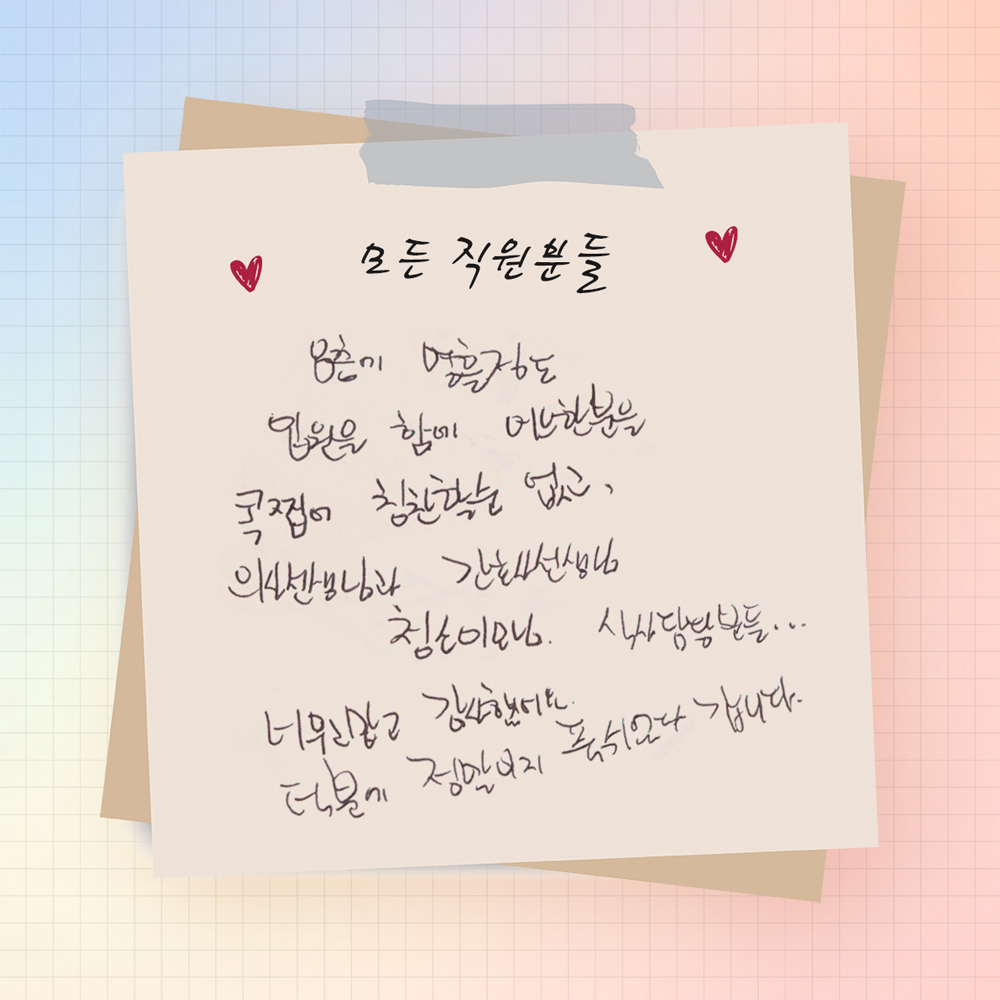 모든 직원분들
8층에 열흘정도
입원을 함에 어느한분을
콕찝어 칭찬할순 없고,
의사선생님과 간호사선생님
청소이모님. 식사담당분들...
너무 맑고 감사했어요.
덕분에 정말 푹쉬었다 갑니다.